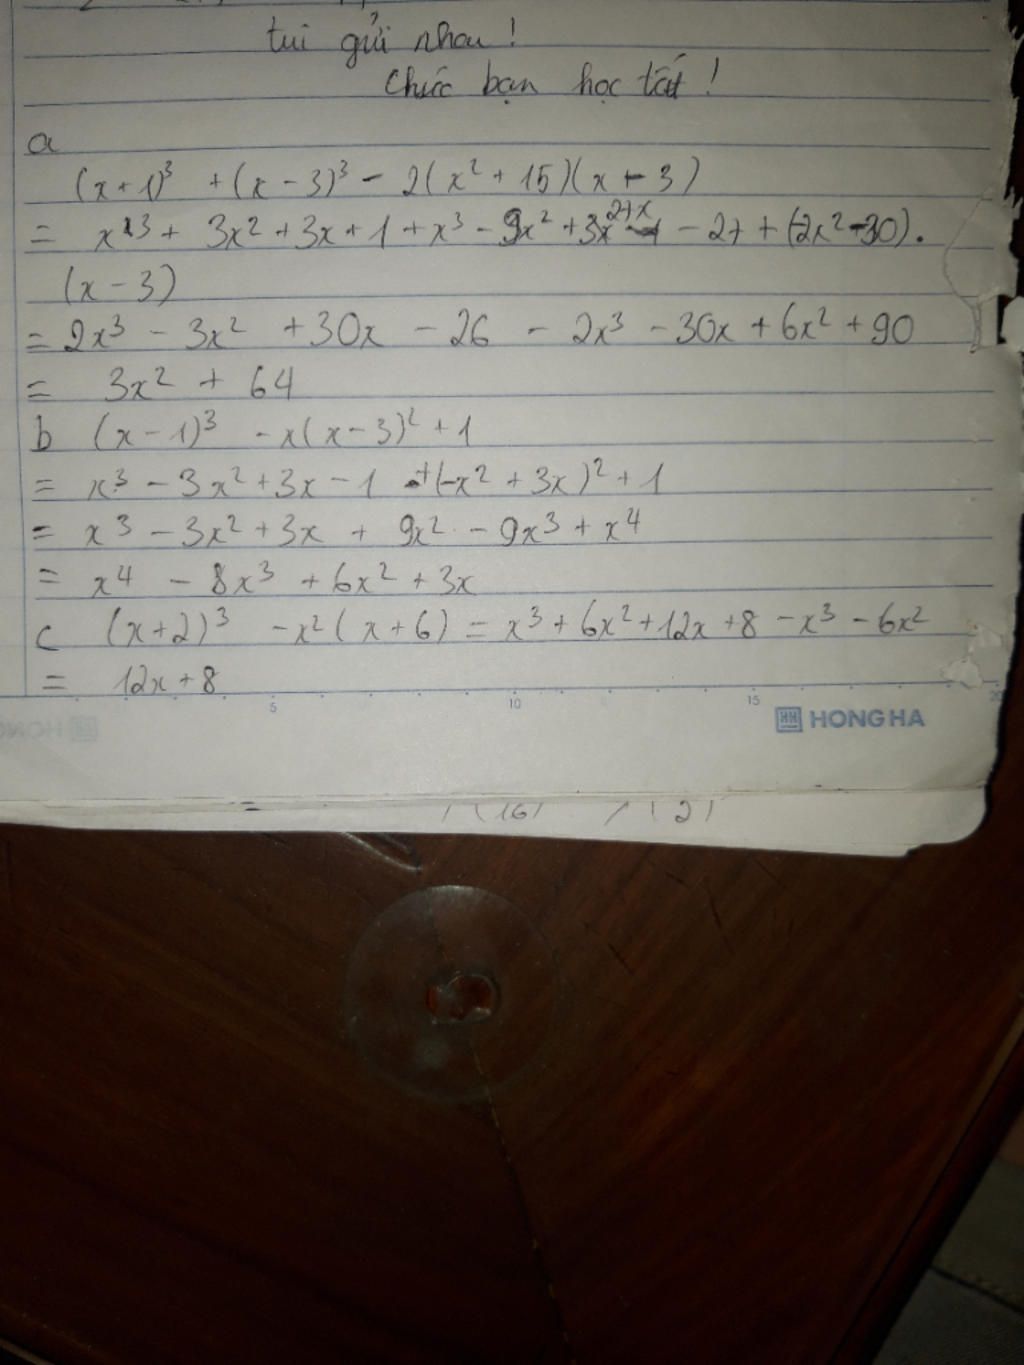 tui gửi nhau!
Chúc bạn học tốt!
a
(x+1)³ + (x-3)³ - 2(x²+15)(x-3)
= x³ + 3x² + 3x + 1 + x³ - 9x² + 27x - 27 + (-2x²-30).
(x-3)
= 2x³ - 3x² + 30x - 26 - 2x³ - 30x + 6x² + 90
= 3x² + 64
b (x-1)³ - x(x-3)² + 1
= x³ - 3x² + 3x - 1 + (-x² + 3x)² + 1
= x³ - 3x² + 3x + 9x² - 9x³ + x⁴
= x⁴ - 8x³ + 6x² + 3x
c (x+2)³ - x²(x+6) = x³ + 6x² + 12x + 8 - x³ - 6x²
= 12x + 8
5 10 15 20
HONG HA
= (16) (2)